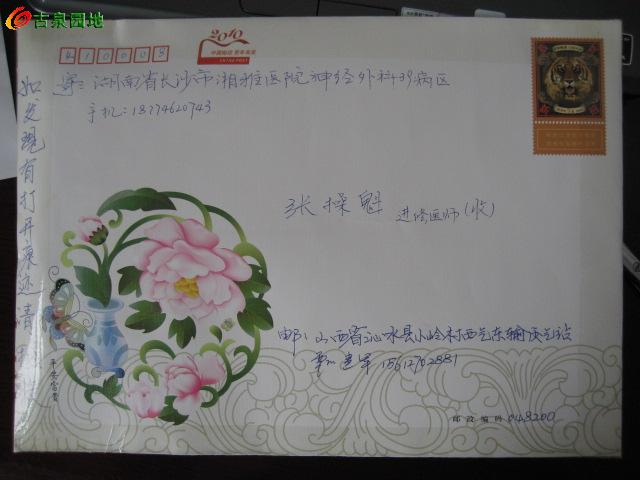 古泉园地
410008
2010
中国邮政 贺年有奖
CHINA POST
寄：湖南省长沙市湘雅医院神经外科39病区
手机：18774620743
如发现有打开痕迹请
张操魁 进修医师(收)
邮：山西省沁水县小岭村西气东输压气站
建军 15612702881
平安富贵
邮政编码 048200